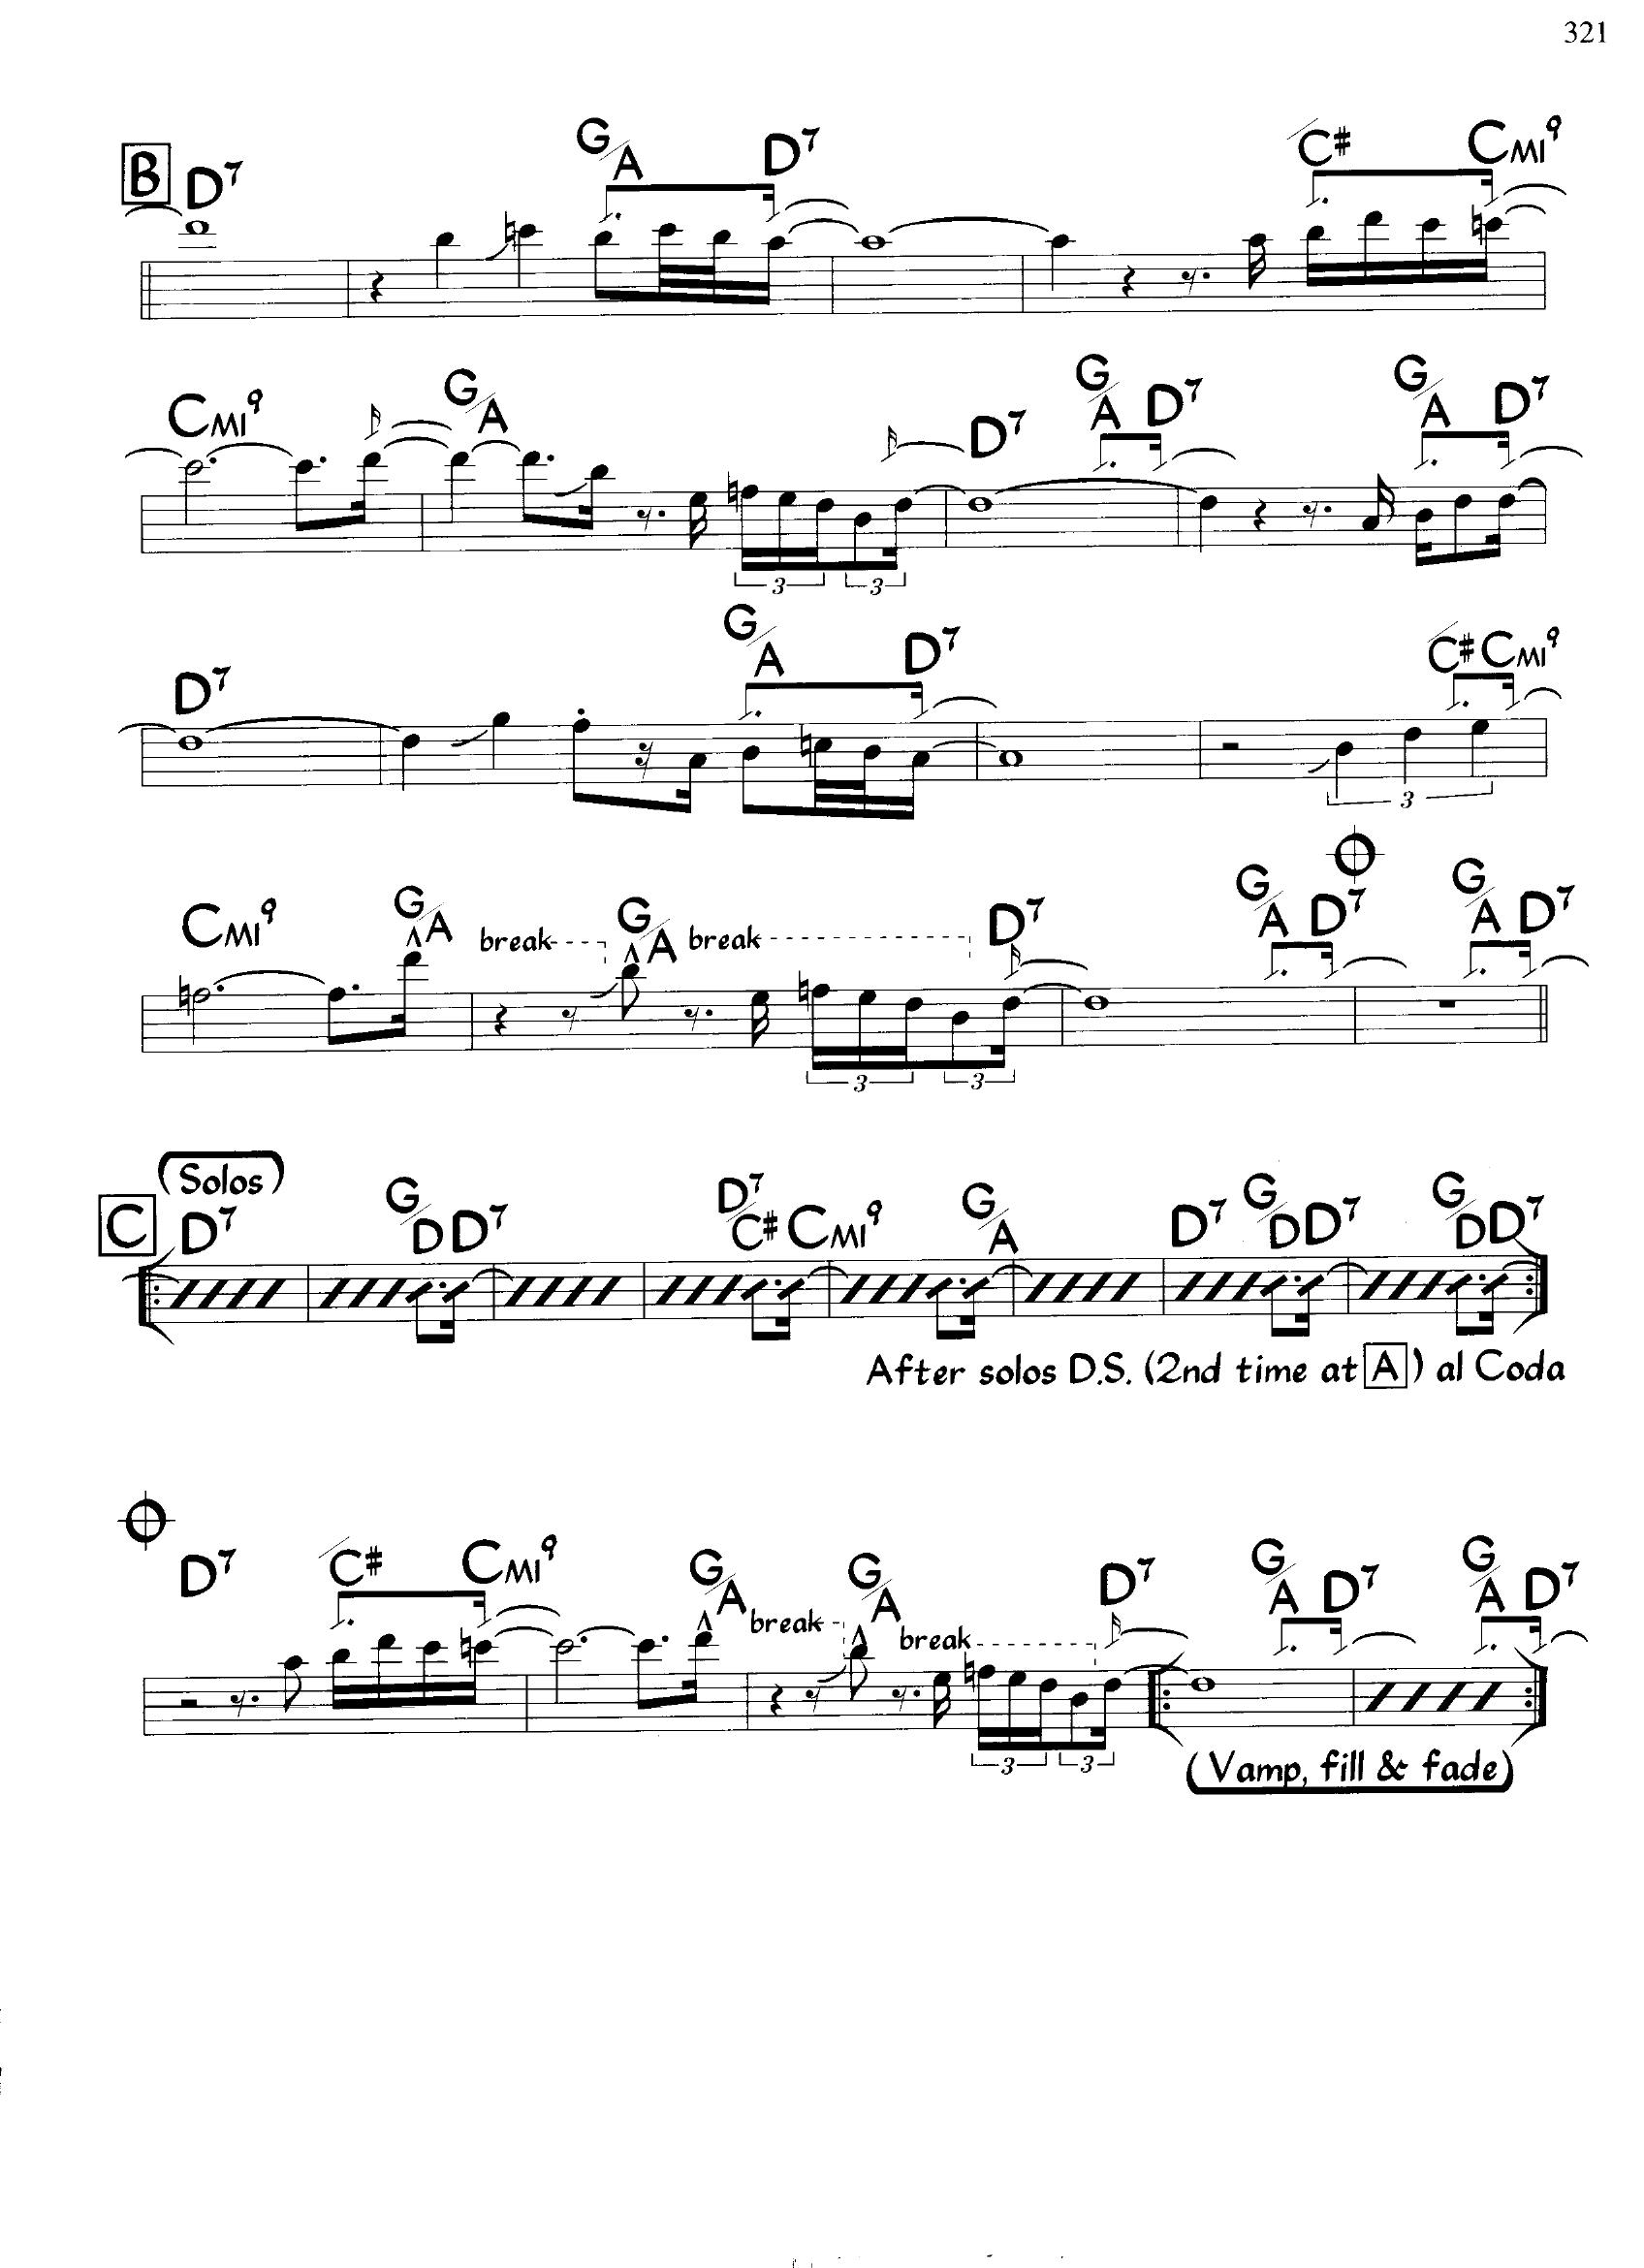 321
B D7 G/A D7 /C# CMI9
CMI9 G/A D7 G/A D7 G/A D7
3 3
D7 G/A D7 /C# CMI9
3
CMI9 G/A break G/A break D7 G/A D7 G/A D7
3 3
(Solos)
C D7 G/D D7 D7/C# CMI9 G/A D7 G/D D7 G/D D7
After solos D.S. (2nd time at A) al Coda
D7 /C# CMI9 G/A break G/A break D7 G/A D7 G/A D7
3 3
(Vamp, fill & fade)